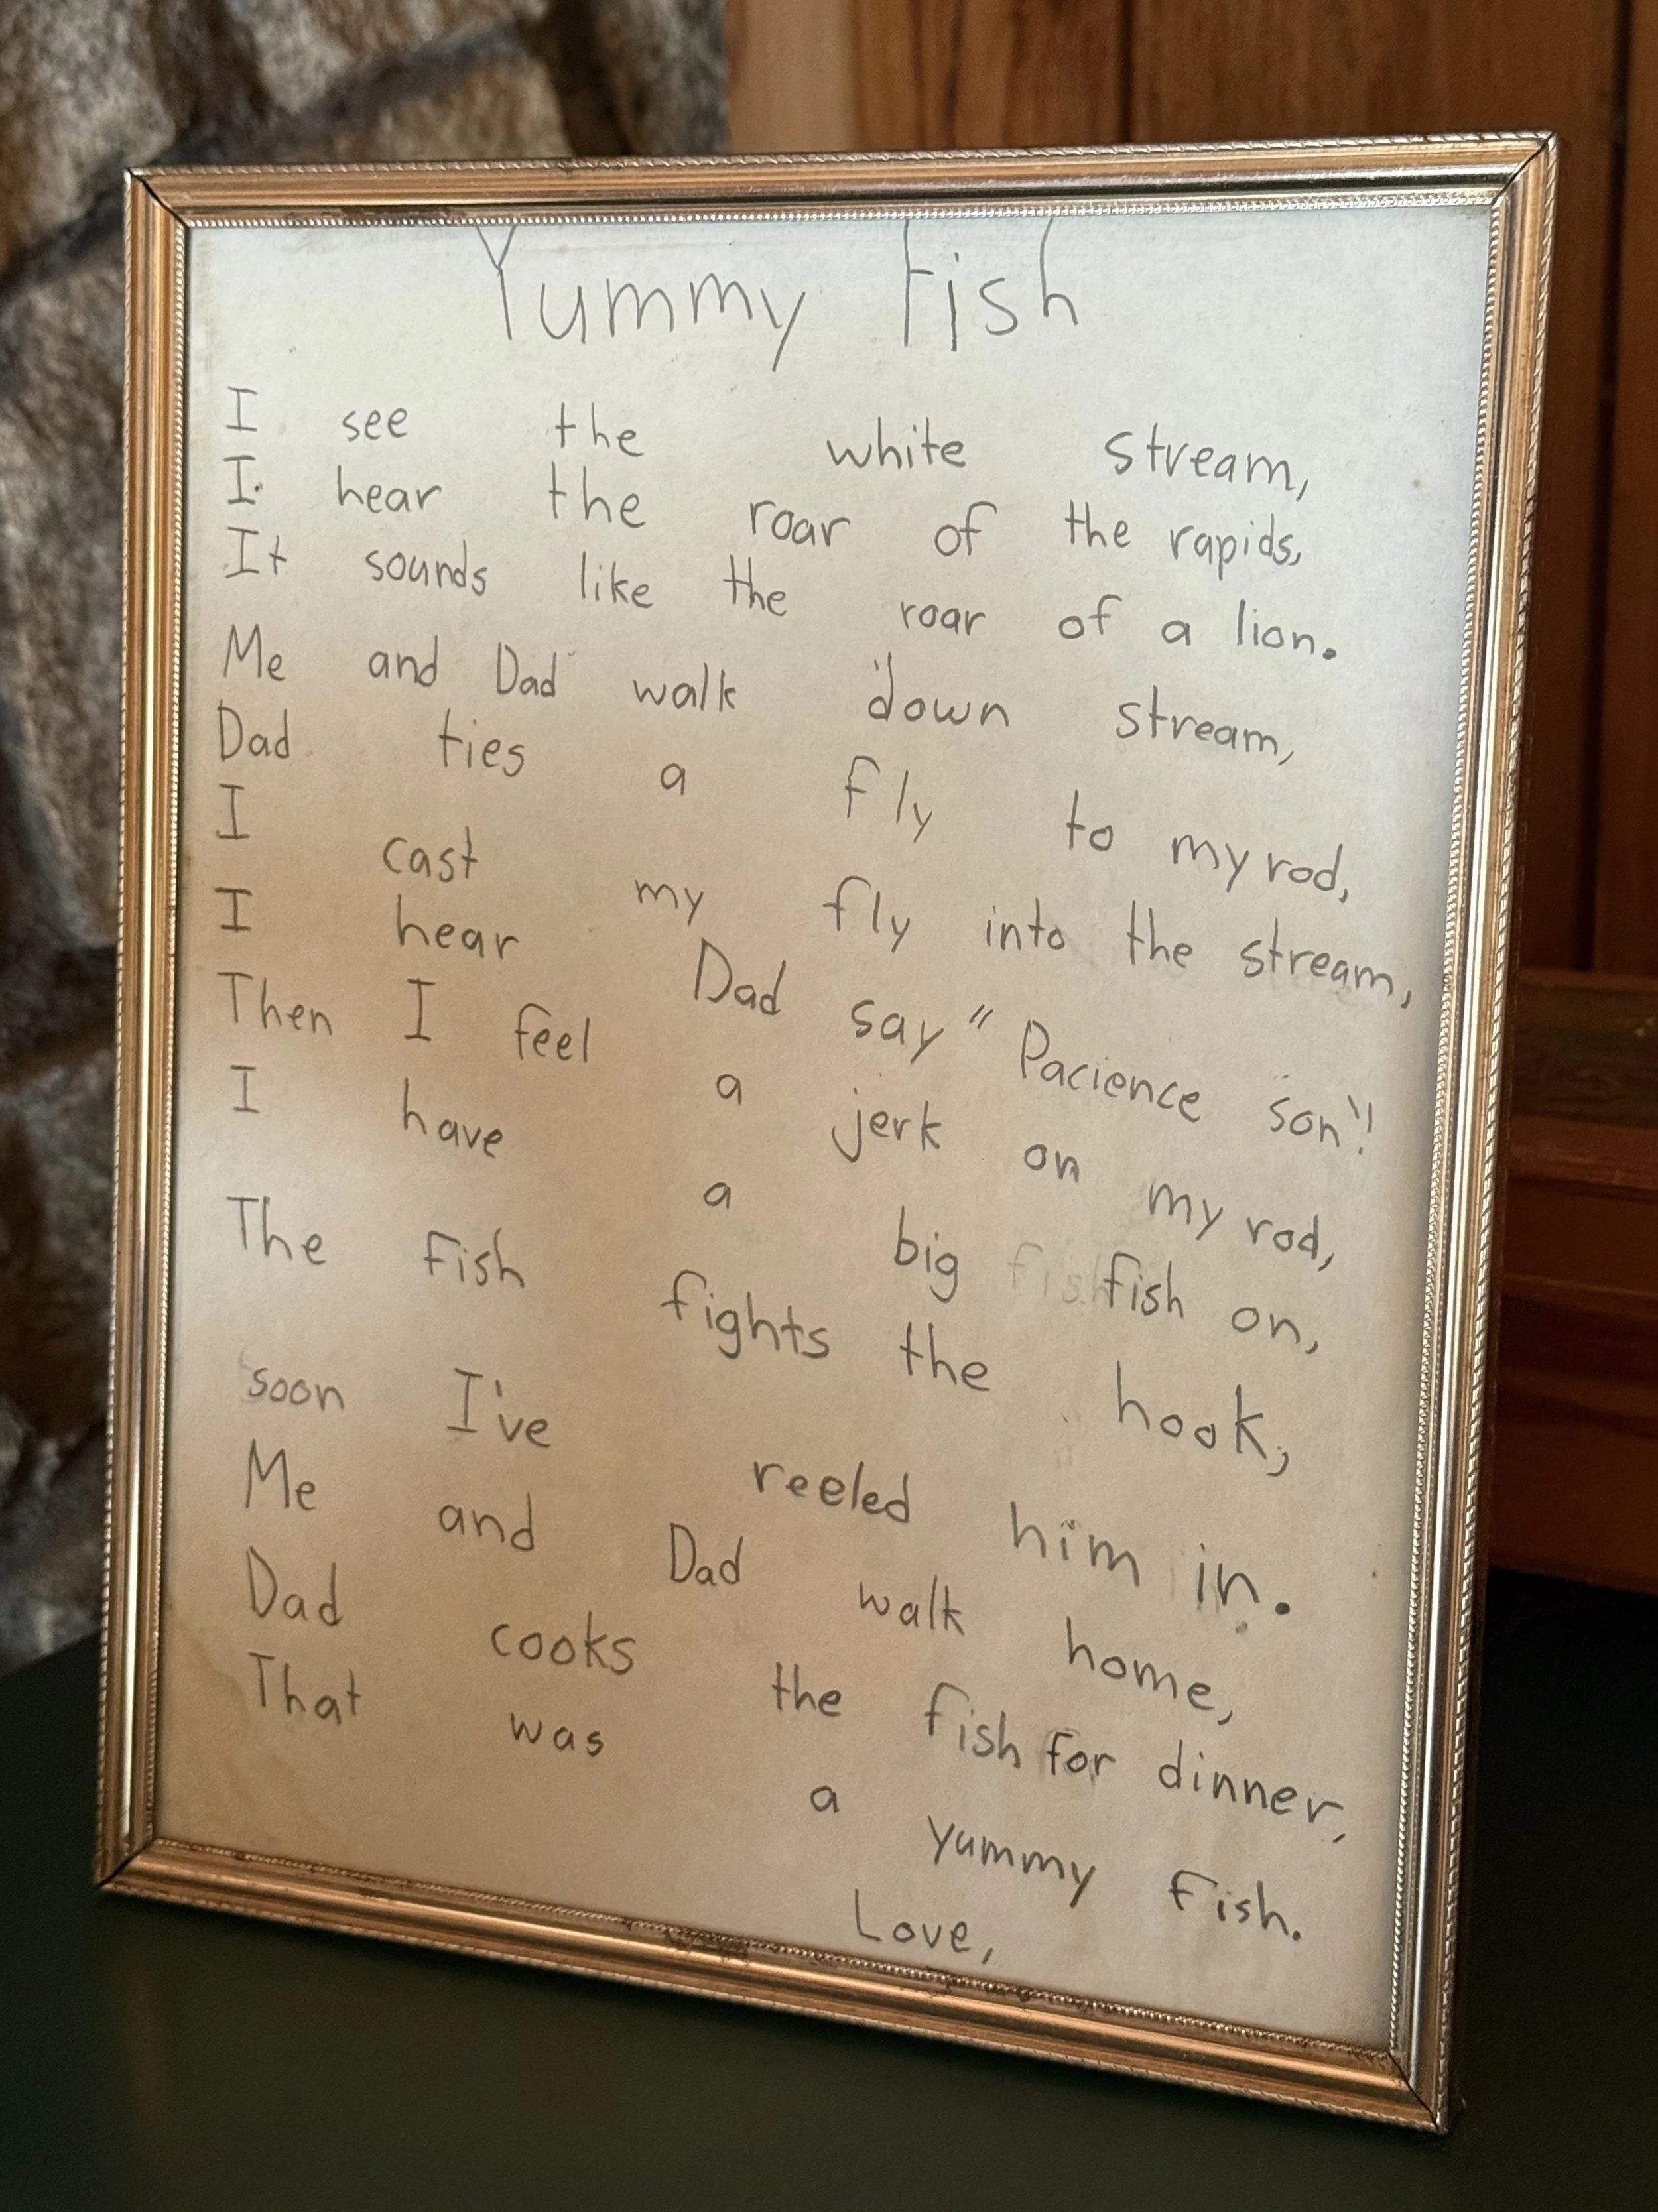 Yummy Fish
I see the white stream,
I hear the roar of the rapids,
It sounds like the roar of a lion.
Me and Dad walk down stream,
Dad ties a fly to my rod,
I cast my fly into the stream,
I hear Dad say "Pacience son"!
Then I feel a jerk on my rod,
I have a big fish on,
The fish fights the hook,
soon I've reeled him in.
Me and Dad walk home,
Dad cooks the fish for dinner,
That was a yummy fish.
Love,